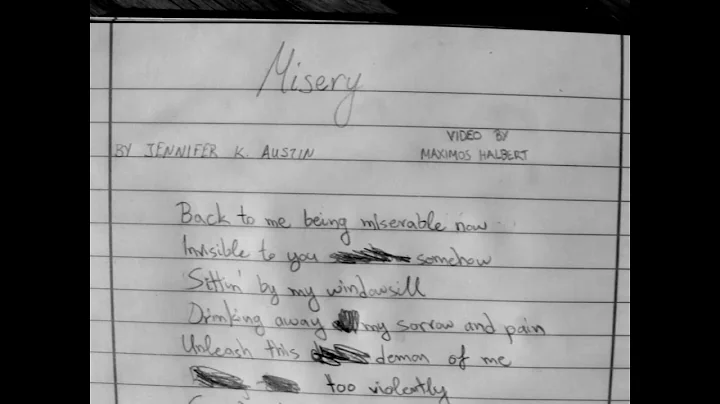 Misery
VIDEO BY
BY JENNIFER K. AUSTIN MAXIMOS HALBERT
Back to me being miserable now
Invisible to you somehow
Sittin' by my windowsill
Drinking away my sorrow and pain
Unleash this demon of me
too violently